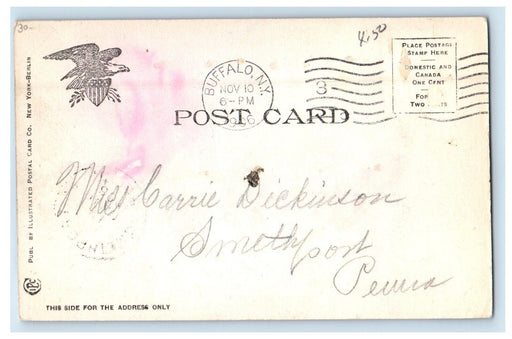 30-
4.50
PLACE POSTAGE
STAMP HERE
DOMESTIC AND
CANADA
ONE CENT
FOR
BUFFALO, N.Y.
NOV 10
6-PM
3
POST CARD
PUBL. BY ILLUSTRATED POSTAL CARD CO. NEW YORK-BERLIN
Miss Carrie Dickinson
Smethport
Penna
THIS SIDE FOR THE ADDRESS ONLY